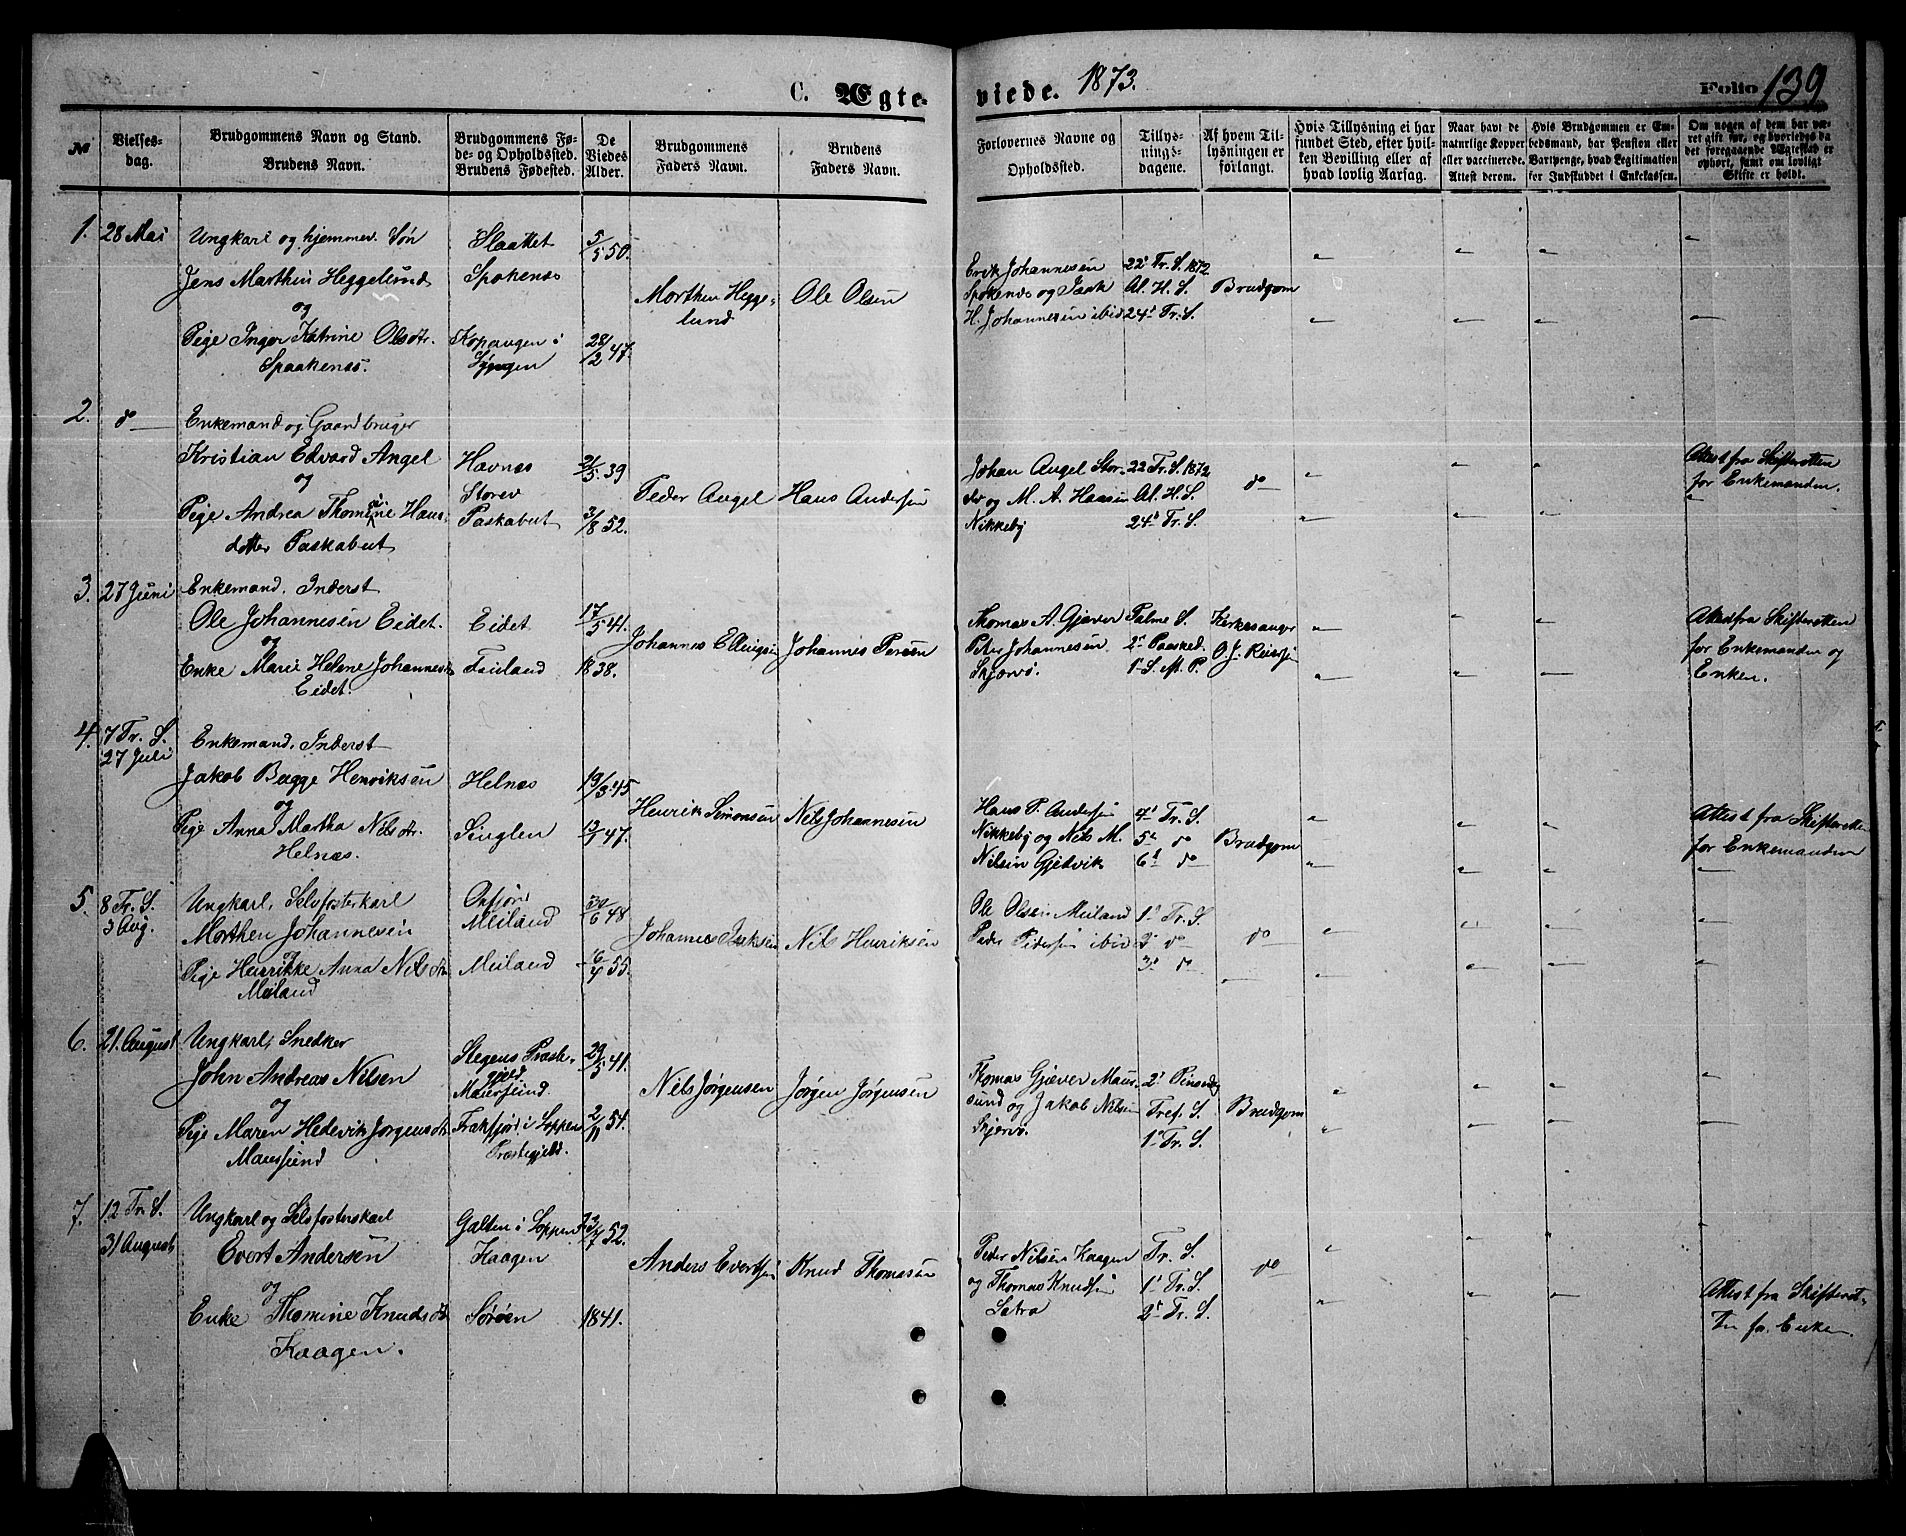 C. Ægte-
viede. 1873.
Folio 139
№
Vielses-
dag.
Brudgommens Navn og Stand.
Brudens Navn.
Brudgommens Fø-
de- og Opholdssted.
Brudens Fødested.
De
Viedes
Alder.
Brudgommens
Faders Navn.
Brudens
Faders Navn.
Forlovernes Navne og
Opholdssted.
Tillys-
nings-
dagene.
Af hvem Til-
lysningen er
forlangt.
Hvis Tillysning ei har
fundet Sted, efter hvil-
ken Bevilling eller af
hvad lovlig Aarsag.
Naar havt de
naturlige Kopper
eller vaccinerede.
Attest derom.
Hvis Brudgommen er Em-
bedsmand, har Pension eller
Vartpenge, hvad Legitimation
for Indskuddet i Enkekassen.
Om nogen af dem har væ-
ret gift før, og hvorledes da
det foregaaende Ægteskab er
ophørt, samt om lovligt
Skifte er holdt.
1.
28 Mai
Ungkarl og hjemmev. Søn
Jens Marthin Heggelund
og
Pige Inger Katrine Olsdtr.
Spaakenes.
Slaattet
Spokenes
Kopangen i
Lyngen
5/5 50.
28/2 47.
Morthen Hegge-
lund
Ole Olsen
Erik Johannesen
Spokenes og Isak
H. Johannesen ibid
22d Tr. S. 1872
Al. H. S.
24d Tr. S.
Brudgom
2.
do
Enkemand og Gaardbruger
Kristian Edvard Angel
og
Pige Andrea Thomine Hans-
dotter Paskabut
Havnes
Storev
Paskabut
21/5 39
3/8 52.
Peder Angel
Hans Andersen
Johan Angel Stor-
ev og M. A. Hansen
Nikkeby
22 Tr. S. 1872
Al. H. S.
24d Tr. S.
do
Attest fra Skifteretten
for Enkemanden.
3.
27 Juni
Enkemand. Inderst
Ole Johannesen Eidet.
og
Enke Marie Helene Johannesdtr
Eidet.
Eidet
Finland
17/5 41.
1838.
Johannes Ellingsen
Johannes Persen
Thomas A. Gjæver
Peter Johannesen
Skjervø.
Palme S.
2d Paasked.
1d S. M. P.
Kirkesanger
O. J. Reiersen
Attest fra Skifteretten
for Enkemanden og
Enken.
4.
7 Tr. S.
27 Juli
Enkemand. Inderst
Jakob Bugge Henriksen
og
Pige Anna Martha Nilsdtr.
Helnæs.
Helnæs
Singlen
19/3 45
12/7 47.
Henrik Simonsen
Nils Johannesen
Hans P. Andersen
Nikkeby og Nils M.
Nilsen Gjedvik
4d Tr. S.
5d do
6d do
Brudgom
Attest fra Skifteretten
for Enkemanden
5.
8 Tr. S.
3 Aug.
Ungkarl, Selvfosterkarl
Morthen Johannesen
og
Pige Henrikke Anna Nilsdtr
Meiland
Oxfjord
Meiland
Meiland
6/4 55.
Johannes Isaksen
Nils Henriksen
Ole Olsen Meiland
Peder Pedersen ibid
1d Tr. S.
2d do
3d do
do
6.
21. August
Ungkarl, Snedker
John Andreas Nilsen
og
Pige Maren Hedevik Jørgensdtr
Maursund
Stegens Præste-
gjeld
Maursund.
Frakfjord i Loppen
Præstegjeld.
29/5 41.
2/11 54.
Nils Jørgensen
Jørgen Jørgensen
Thomas Gjæver Maur-
sund og Jakob Nilsen
Skjervø.
2d Pinsedag
Tref. S.
1d Tr. S.
Brudgom
7.
12 Tr. S.
31 August
Ungkarl og Selvfosterkarl
Evert Andersen
og
Enke Thomine Knudsdtr
Kaagen.
Galten i Loppen
Kaagen
Sørøen
23/7 52.
1841.
Anders Evertsen
Knud Thomasen
Peder Nilsen Kaagen
og Thomas Knudsen
Tr. S.
1d Tr. S.
2d Tr. S.
do
Attest fra Skifteret-
ten for Enken.